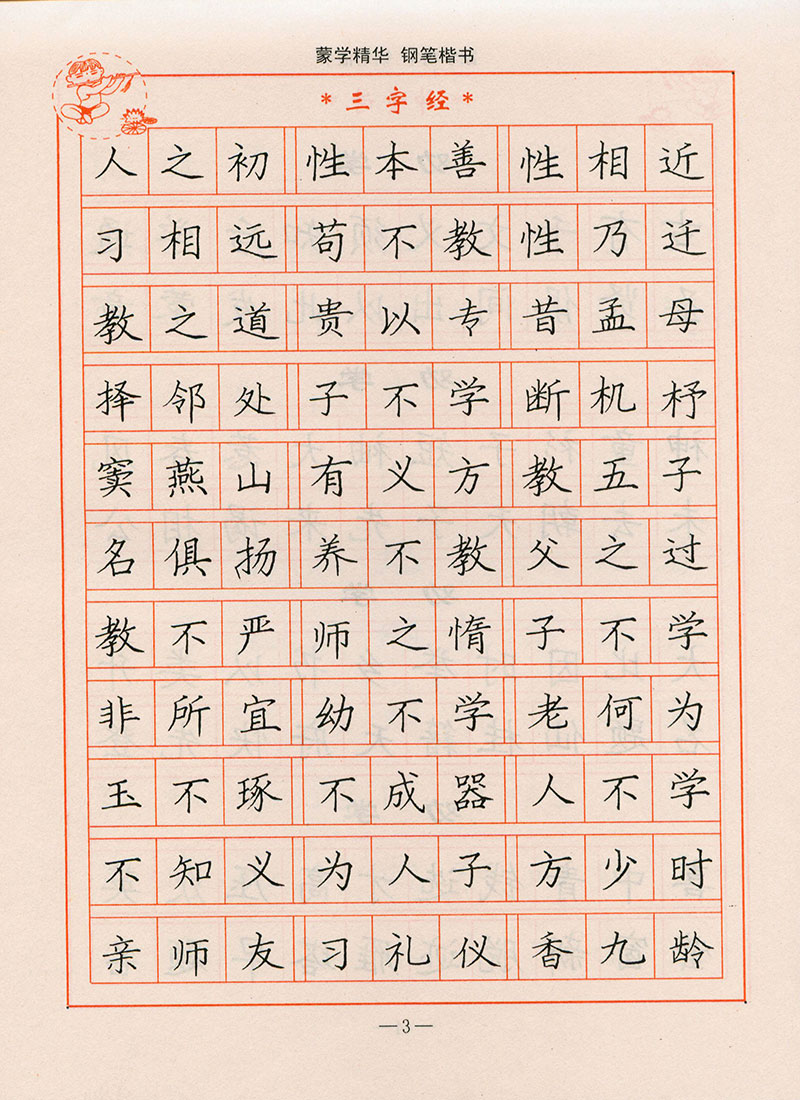 蒙学精华 钢笔楷书
*三字经*
人之初 性本善 性相近
习相远 苟不教 性乃迁
教之道 贵以专 昔孟母
择邻处 子不学 断机杼
窦燕山 有义方 教五子
名俱扬 养不教 父之过
教不严 师之惰 子不学
非所宜 幼不学 老何为
玉不琢 不成器 人不学
不知义 为人子 方少时
亲师友 习礼仪 香九龄
—3—